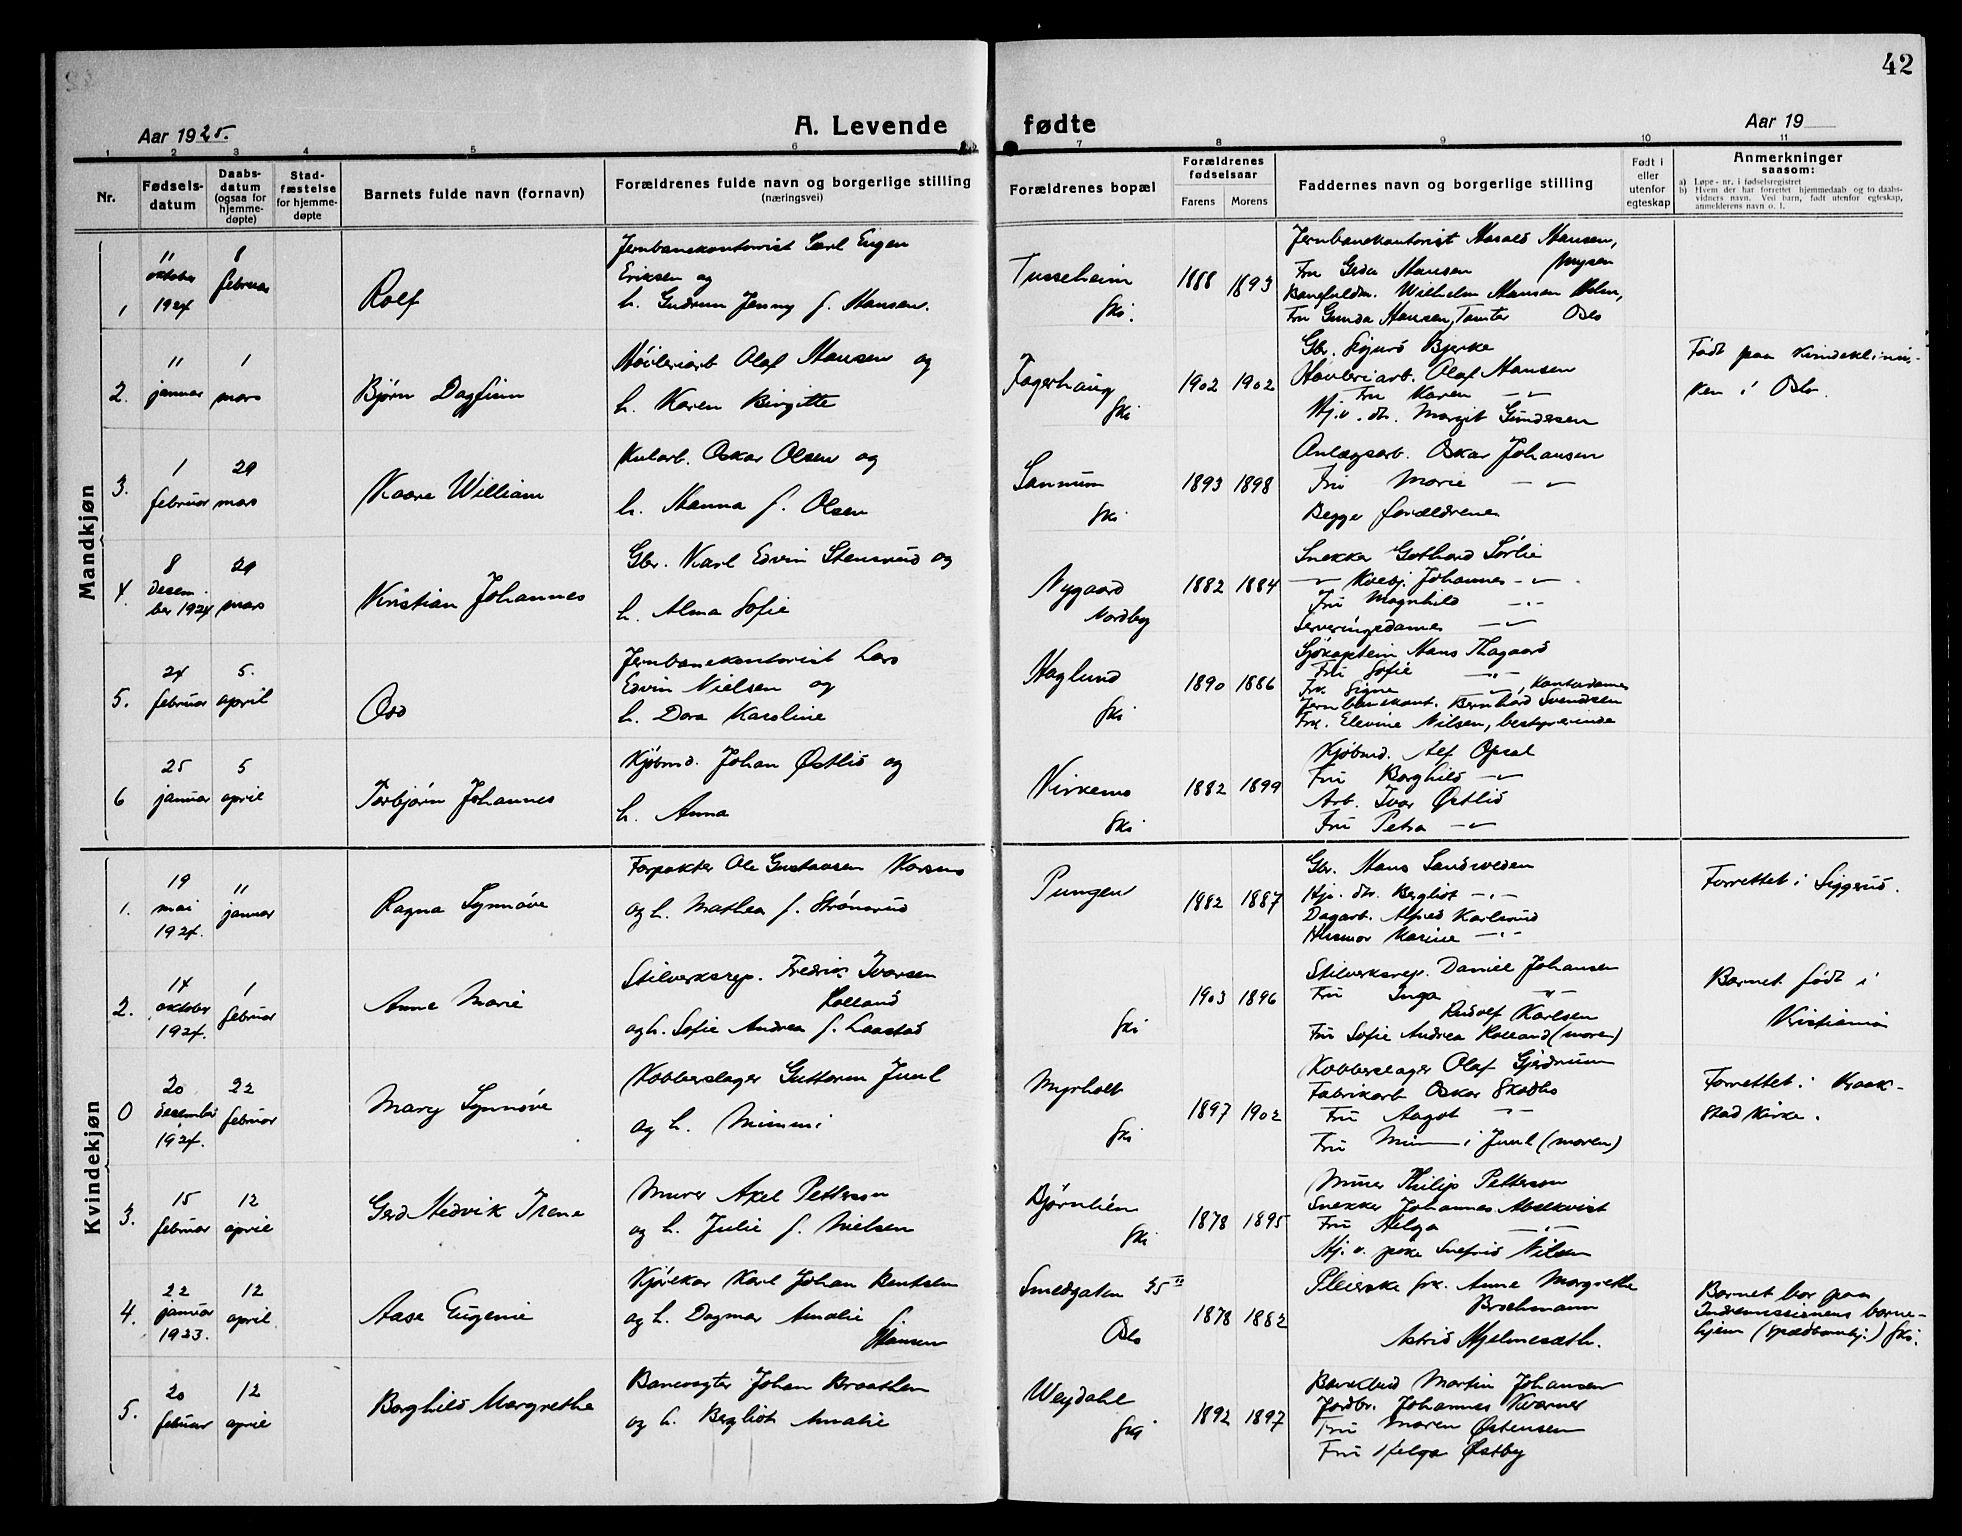 42
Aar 1925.
A. Levende fødte
Aar 19
1 2 3 4 5 6 7 8 9 10 11
Nr.
Fødsels-
datum
Daabs-
datum
(ogsaa for
hjemme-
døpte)
Stad-
fæstelse
for hjemme-
døpte
Barnets fulde navn (fornavn)
Forældrenes fulde navn og borgerlige stilling
(næringsvei)
Forældrenes bopæl
Forældrenes
fødselsaar
Farens Morens
Faddernes navn og borgerlige stilling
Født i
eller
utenfor
egteskap
Anmerkninger
saasom:
a) Løpe-nr. i fødselsregistret
b) Hvem der har forrettet hjemmedaab og to daabs-
vidners navn. Ved barn, født utenfor egteskap,
anmelderens navn o. l.
Mandkjøn
1
11 oktober 1924
8 februar
Rolf
Jernbanekontorist Carl Eugen
Eriksen og
h. Gudrun Jenny f. Hansen.
Tusseheim
Ski.
1888 1893
Jernbanekontorist Harald Hansen,
Fru Gerda Hansen Mysen
Banefuldm. Wilhelm Hansen Holm,
Fru Gunda Hansen, Tomter Oslo
2.
11 januar
1 mars
Bjørn Dagfinn
Høvleriarb Olaf Hansen og
h. Karen Birgitte
Fagerhaug
Ski
1902 1902
Gbr. Sigurd Bjerke
Høvleriarb. Olaf Hansen
Fru Karen -"-
Hj.v. dtr. Margit Gundersen
Født paa Kvindeklinik-
ken i Oslo.
3.
1 februar
29 mars
Kaare William
h. Hanna f. Olsen
Oskar Olsen og
Sannum
Ski
1893 1898
Anlægsarb. Oskar Johansen
Fru Marie -"-
Begge forældrene
4.
8 desem-
ber 1924
29 mars
Kristian Johannes
Gbr. Karl Edvin Stensrud og
h. Alma Sofie
Nygaard
Nordby
1882 1884
Snekker Gothard Sørlie
-"- Johannes -"-
Fru Magnhild -"-
Serveringsdame -"-
5.
24 februar
5. april
Odd
Jernbanekontorist Lars
Edvin Nielsen og
h. Dora Karoline
Haglund
Ski
1890 1886
Sjökaptein Hans Thagaard
Fru Sofie -"-
Frk. Signe -"-, Kontordame
Jernbanekont. Bernhard Svendsen
Frk. Elevine Nilsen, bestyrerinde
6
25 januar
5 april
Torbjørn Johannes
Kjøbmd. Johan Østlid og
h. Anna
Virkemo
Ski
1882 1899
Kjøbmd. Alf Opsal
Fru Borghild -"-
Arb. Ivar Østlid
Fru Petra -"-
Kvindekjøn
1.
19 mai 1924.
11 januar
Ragna Synnøve
Forpakter Ole Gustavsen Karsmo
og h. Mathea f. Strømsrud
Pungen
1882 1887
Gbr. Hans Sandsveden
Hjv. dtr. Bergliot -"-
Dagarb. Alfred Karlsrud
Husmor Karine -"-
Forrettet i Siggerud.
2.
14 oktober 1924.
1 februar
Anne Marie
Stilverksrep. Fredrik Ivarsen
Holland
og h. Sofie Andrea f. Laastad
Ski
1903 1896
Stilverksrep. Daniel Johansen
Fru Inga -"-
Rudolf Karlsen
Fru Sofie Andrea Holland (moren)
Barnet født i
Kristiania
0
20 desember 1924.
22 februar
Mary Synnøve
Kobberslager Guttorm Juul
og h. Mimmi
Myrholt
Ski
1897 1902
Kobberslager Olaf Gjerdrum
Fabrikarb Oskar Skodbo
Fru Aagot -"-
Fru Mimmi Juul (moren)
Forrettet i Kraak-
stad Kirke.
3.
15 februar
12 april
Gerd Hedvik Irene
Murer Axel Petterson
og h. Julie f. Nielsen
Bjørnlien
Ski
1878 1895
Murer Philip Petterson
Snekker Johannes Abelkvist
Fru Helga -"-
Hj. v. pike Snefrid Nilsen
4.
22 januar 1923.
12 april
Aase Eugenie
Kjørekar Karl Johan Bentsen
og h. Dagmar Amalie
f. Hansen
Smedgaten 35 II
Oslo
1878 1882
Pleierske frk. Anne Margrethe
Brochmann
Astrid Hjelmesæth.
Barnet bor paa
Indremissionens barne-
hjem (spædbarnhj.) Ski.
5.
20 februar
12 april
Borghild Margrethe
Banevogter Johan Braathen
og h. Bergliot Amalie
Weydahl
Ski
1892 1897
Martin Johansen
Jordbr. Johannes Kvarner
Fru Maren Østensen
Fru Helga Østby